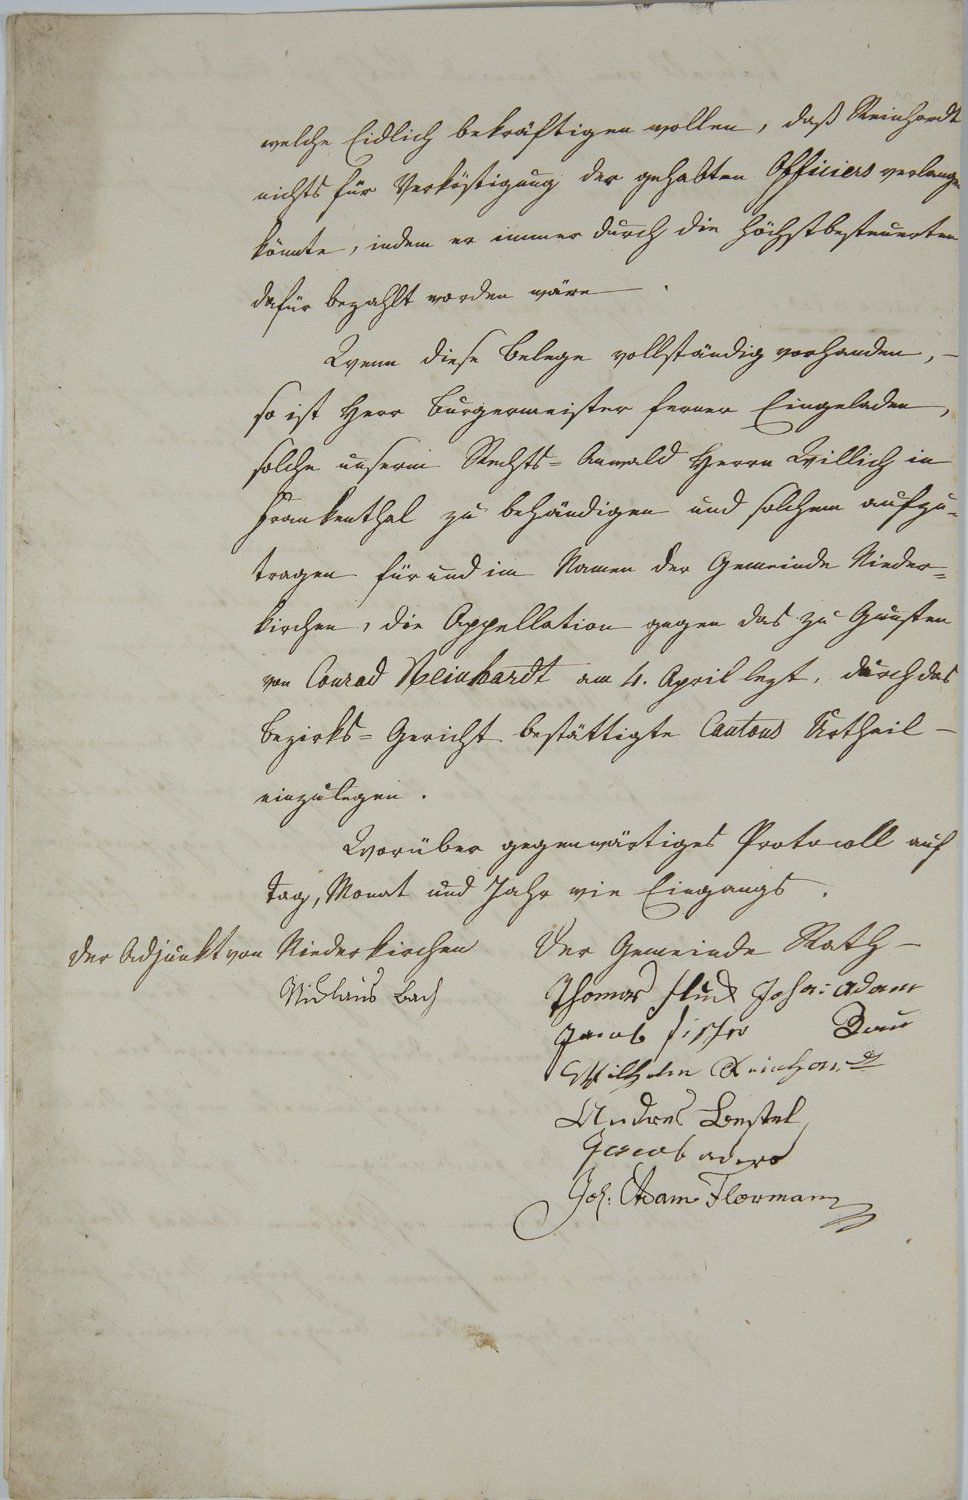 welche Eidlich bekräftigen wollen, daß Reinhardt
nichts für Verköstigung der gehabten Officiers verlangen
könnte, indem er immer durch die Höchstbesteuerten
dafür bezahlt worden wäre .
Wenn diese Belege vollständig vorhanden, –
so ist Herr Burgermeister ferner Eingeladen,
solche unserm Rechts= Anwald Herrn Willich in
Frankenthal zu behändigen und solchem aufzu=
tragen für und im Namen der Gemeinde Nieder=
kirchen, die Appellation gegen das zu Gunsten
von Conrad Reinhardt am 4. April lezt, durch das
Bezirks= Gericht bestättigte Cantons Urtheil –
einzulegen .
Worüber gegenwärtiges Protocoll auf
Tag, Monat und Jahr wie Eingangs .
Der Adjunkt von Niederkirchen
Niclaus Bach
Der Gemeinde Rath –
Thomas Joha: Adam
Jacob
Wilhelm Reinhardt
Andres Bestel
Jacob
Joh: Adam Flormann